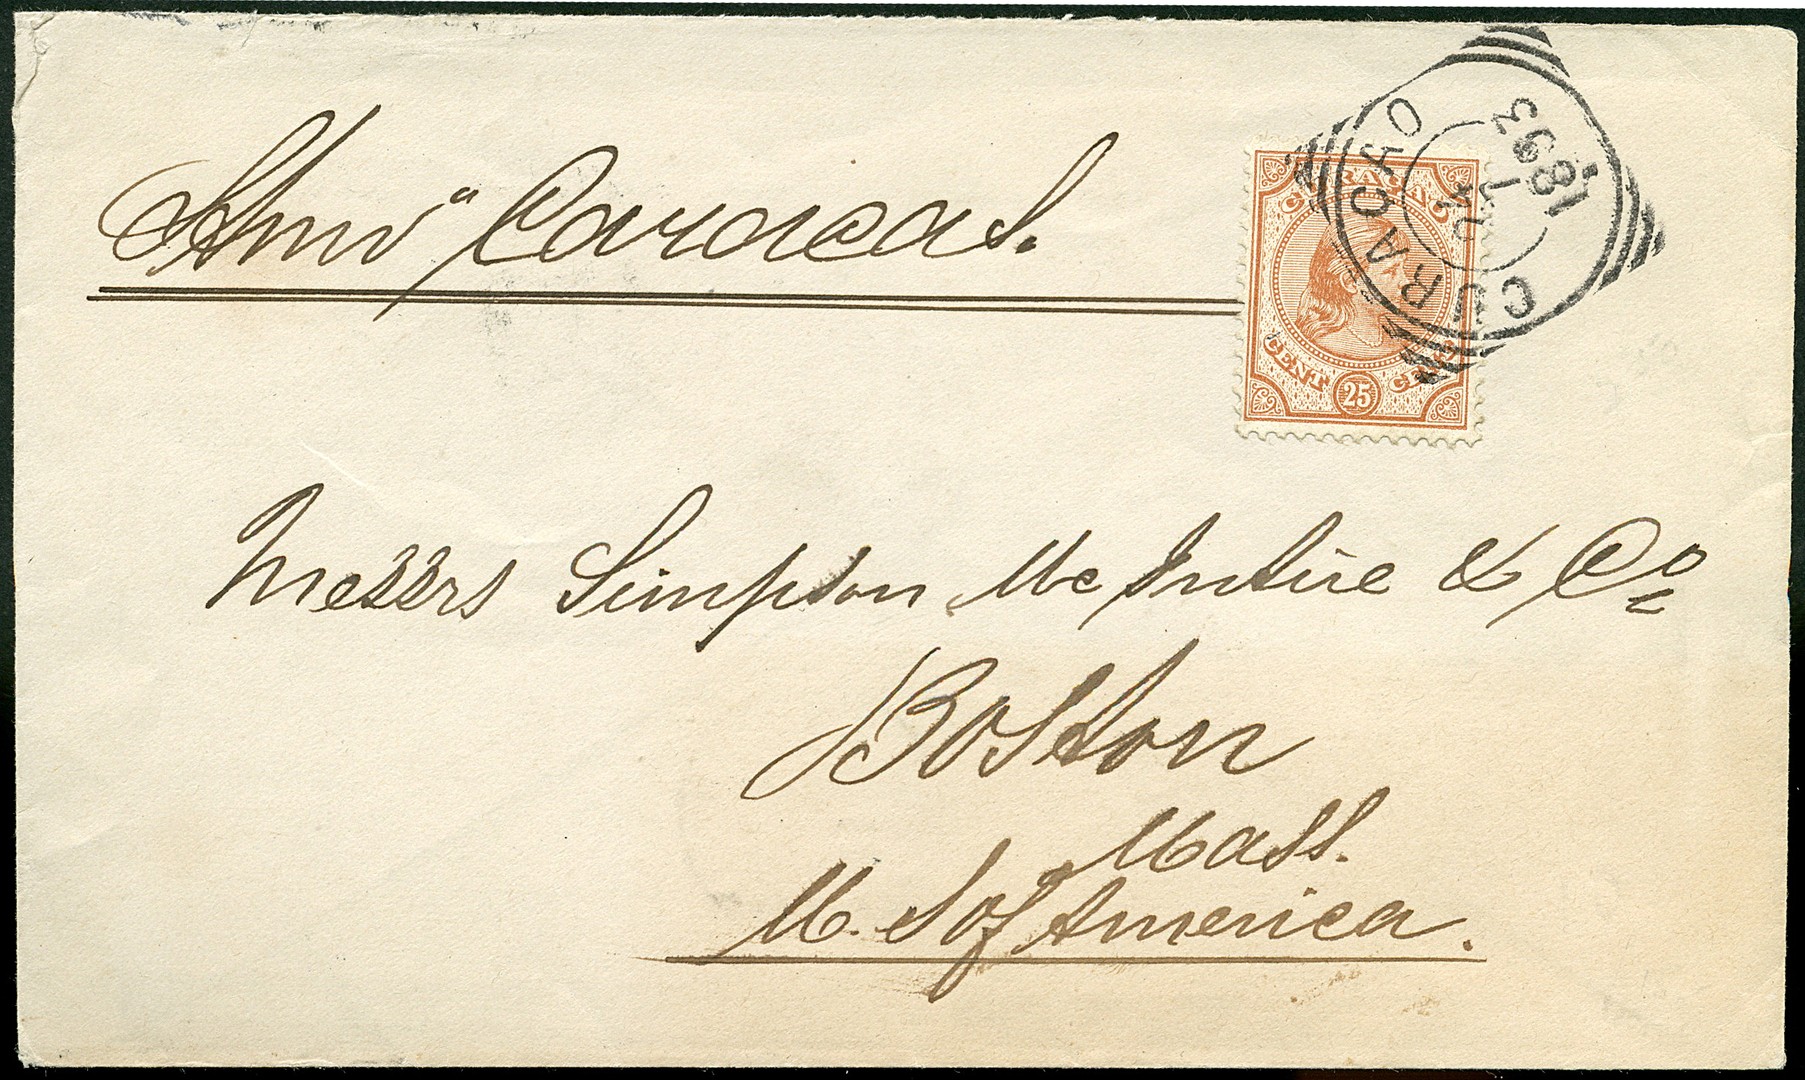 Stmr "Caracas.
CURAÇAO
CENT 25 CENT
CURAÇAO
1893
Messrs Simpson, Mc Intire & Co
Boston
Mass.
U. S of America.